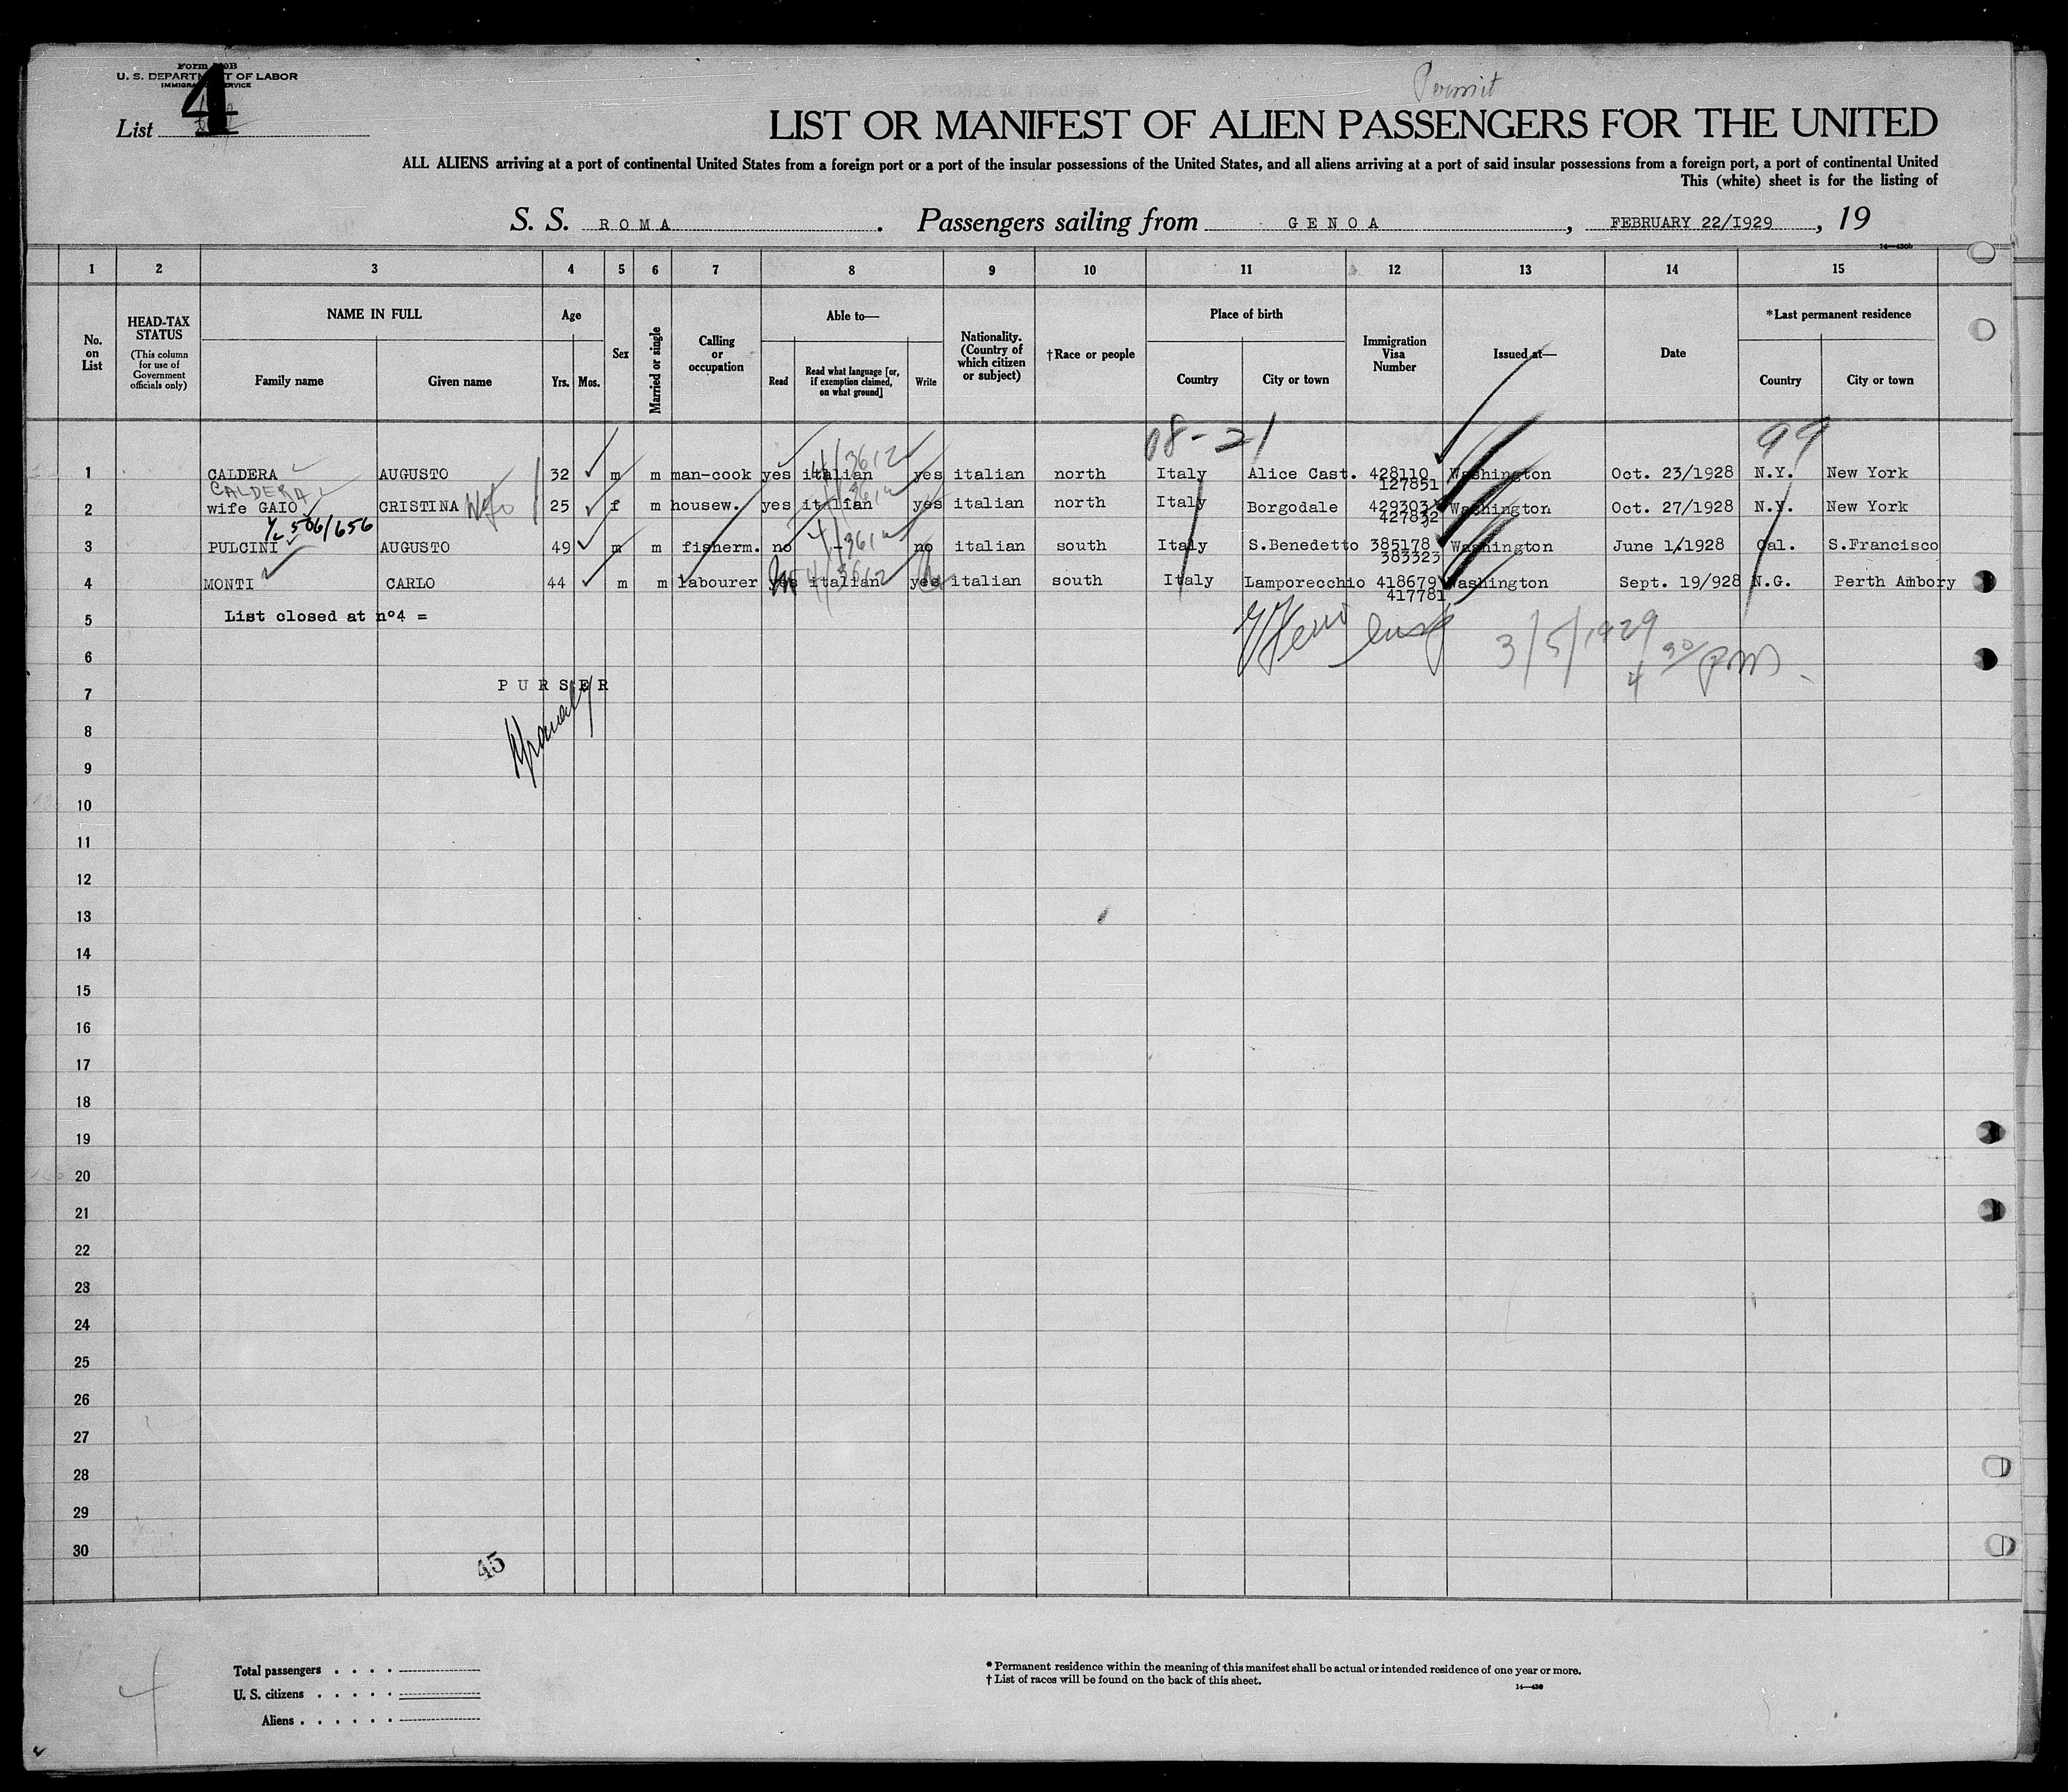 Permit
Form 500B
U. S. DEPARTMENT OF LABOR
IMMIGRATION SERVICE
List 4
LIST OR MANIFEST OF ALIEN PASSENGERS FOR THE UNITED
ALL ALIENS arriving at a port of continental United States from a foreign port or a port of the insular possessions of the United States, and all aliens arriving at a port of said insular possessions from a foreign port, a port of continental United
This (white) sheet is for the listing of
S. S. ROMA. Passengers sailing from GENOA, FEBRUARY 22/1929, 19
1 2 3 4 5 6 7 8 9 10 11 12 13 14 15
No. on List
HEAD-TAX STATUS (This column for use of Government officials only)
NAME IN FULL
Family name Given name
Age
Yrs. Mos.
Sex
Married or single
Calling or occupation
Able to—
Read
Read what language [or, if exemption claimed, on what ground]
Write
Nationality. (Country of which citizen or subject)
†Race or people
Place of birth
Country City or town
Immigration Visa Number
Issued at—
Date
*Last permanent residence
Country City or town
08-21 99
1 CALDERA AUGUSTO 32 m m man-cook yes italian yes italian north Italy Alice Cast. 428110 Washington Oct. 23/1928 N.Y. New York
CALDERA 127851
2 wife GAIO CRISTINA 25 f m housew. yes italian yes italian north Italy Borgodale 429303 Washington Oct. 27/1928 N.Y. New York
506/656 427832
3 PULCINI AUGUSTO 49 m m fisherm. no - no italian south Italy S.Benedetto 385178 Washington June 1/1928 Cal. S.Francisco
383323
4 MONTI CARLO 44 m m labourer yes italian yes italian south Italy Lamporecchio 418679 Washington Sept. 19/928 N.G. Perth Ambory
417781
5 List closed at nº4 =
3/5/1929
6
4 30 PM
7 PURSER
8
9
10
11
12
13
14
15
16
17
18
19
20
21
22
23
24
25
26
27
28
29
30
45
Total passengers . . . .
U. S. citizens . . . . .
Aliens . . . . . .
* Permanent residence within the meaning of this manifest shall be actual or intended residence of one year or more.
† List of races will be found on the back of this sheet.